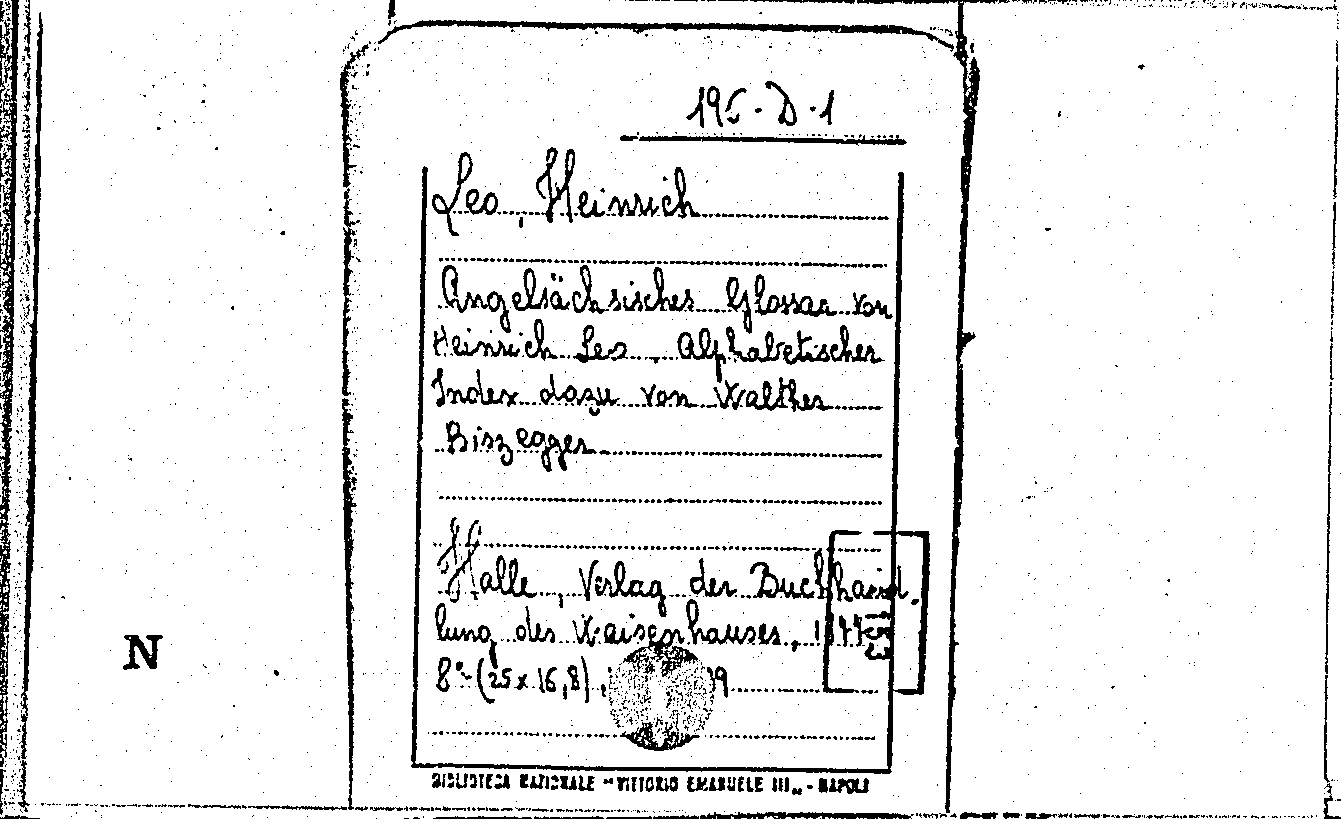 195-D-1
Leo, Heinrich
Angelsächsisches Glossar von
Heinrich Leo. Alphabetischer
Index dazu von Walther
Biszegger
Halle, Verlag der Buchhand-
lung des Waisenhauses,
N
8° (25x16,8),
BIBLIOTECA NAZIONALE "VITTORIO EMANUELE III" - NAPOLI